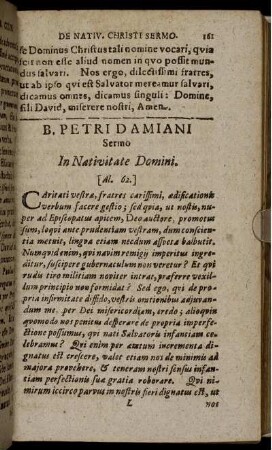 DE NATIV. CHRISTI SERMO. 161
se Dominus Christus tali nomine vocari, qvia
scit non esse aliud nomen in qvo possit mun-
dus salvari. Nos ergo, dilectissimi fratres,
ut ab ipso qui est Salvator mereamur salvari,
dicamus omnes, dicamus singuli: Domine,
fili David, miserere nostri, Amen.
B. PETRI DAMIANI
Sermo
In Nativitate Domini.
[Al. 62.]
Caritati vestræ, fratres carissimi, ædificationis
verbum facere gestio; sed qvia, ut nostis, nu-
per ad Episcopatus apicem, Deo auctore, promotus
sum, loqvi ante prudentiam vestram, dum conscien-
tia metuit, lingva etiam necdum assueta balbutit.
Numqvid enim, qvi navim remigii imperitus ingre-
ditur, suscipere gubernaculum non veretur? Et qvi
rudis tiro militiam noviter intrat, præferre vexil-
lum principio non formidat? Sed ego, qvi de pro-
pria infirmitate diffido, vestris orationibus adjuvan-
dum me, per Dei misericordiam, credo; alioqvin
qvomodo nos penitus desperare de propria imperfe-
ctione possumus, qvi nati Salvatoris infantiam ce-
lebramus? Qvi enim per ætatum incrementa di-
gnatus est crescere, valet etiam nos de minimis ad
majora provehere, & teneram nostri sensus infan-
tiam perfectionis suæ gratia roborare. Qvi ni-
mirum idcirco parvus in nostris fieri dignatus est, ut
L nos